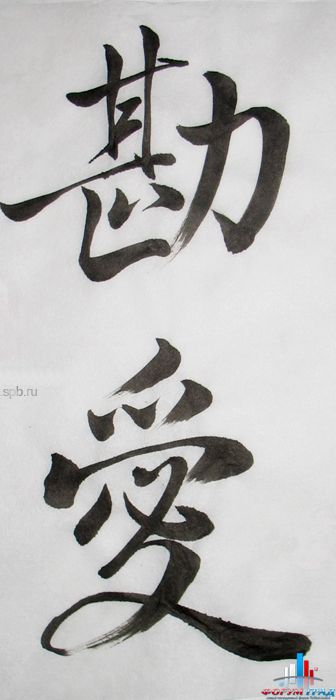 勘
愛
spb.ru
ФОРУМ ГРАД